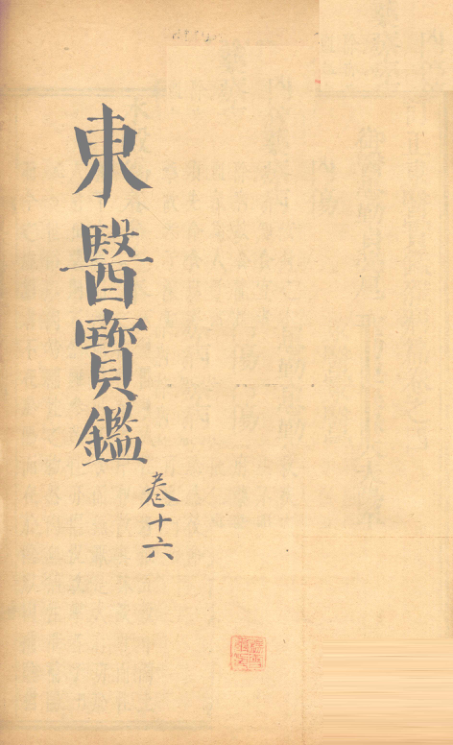 東醫寶鑑
卷十六